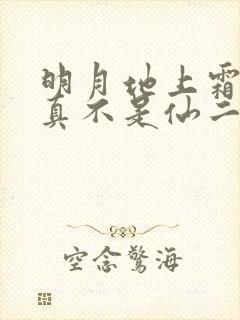 明月地上霜
真不是仙二
空念驚海